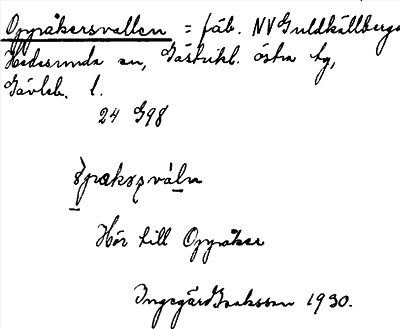 Oppråkersvallen = fäb. NV Guldkällberget
Hedesunda sn, Gästrikl. östra tg,
Gävleb. l.
24 G98
Hör till Oppåker
Ingegärd Isaksson 1930.